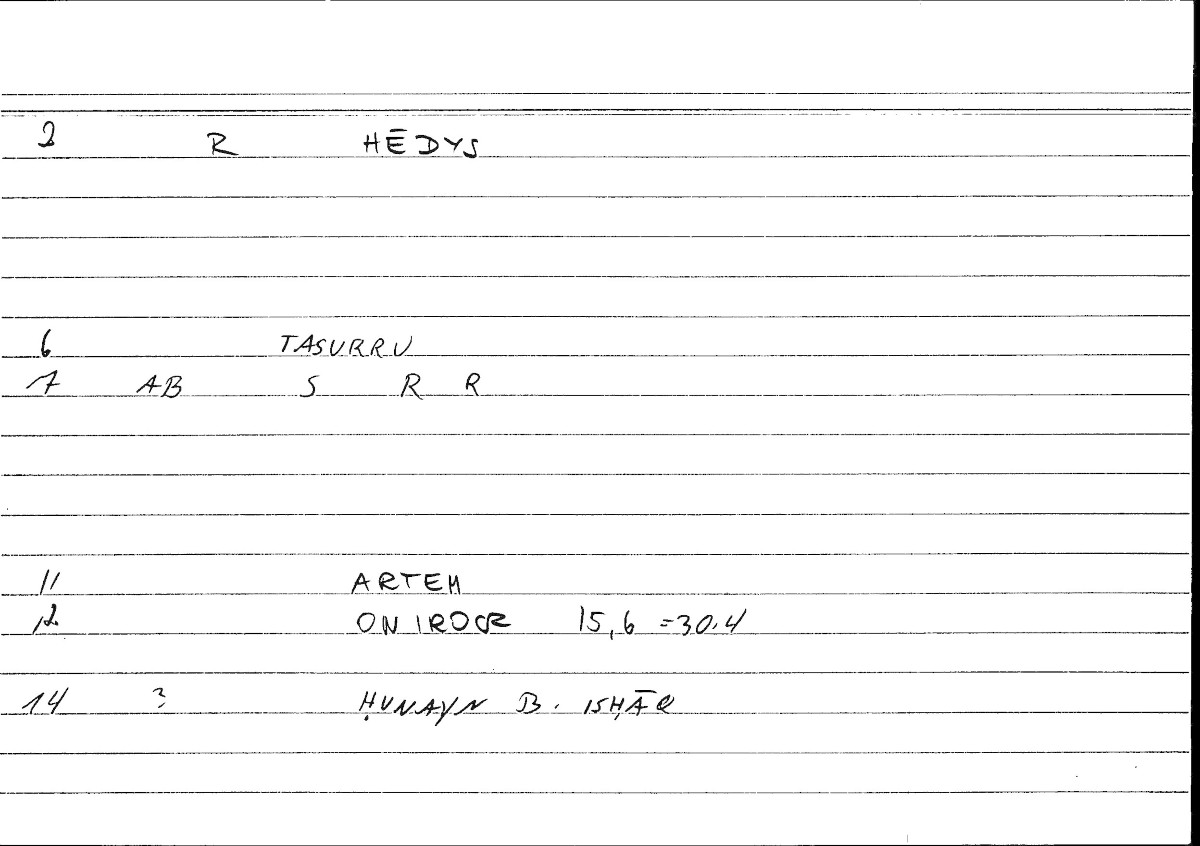 2 R HĒDYS
6 TASURRU
7 AB S R R
11 ARTEM
12 ONIROCR 15,6 =30.4
14 ? ḤUNAYN B. ISḤĀQ